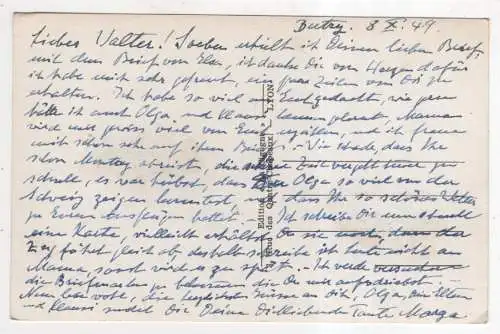 Butry, 8 X. 49.
Lieber Walter! Soeben erhielt ich Deinen lieben Brief,
mit dem Brief von, ich danke Dir von Herzen dafür
ich habe mich sehr gefreut, ein paar Zeilen von Dir zu
erhalten. Ich habe so viel an Euch gedacht, wie gern
hätte ich auch Olga und Klaus, Mama
wird mir gewiss viel von Euch erzählen, und ich freue
mich schon sehr auf ihren Besuch. - Wie schade, dass Ihr
schon Montag abreist, die Zeit vergeht immer zu
schnell, es war hübsch, dass Du Olga so viel von der
Schweiz zeigen konntest, und dass Ihr so schönes Wetter
zu Euren Ausflügen hattet. - Ich schreibe Dir nun
eine Karte, vielleicht erhältst Du sie noch, denn der
Zug fährt gleich ab, deshalb schreibe ich heute nicht an
Mama, sonst wird es zu spät. - Ich werde versuchen
die Briefmarken zu bekommen die Du mir aufschreibst.
Nun lebe wohl, die herzlichsten Küsse an Dich, Olga,
und Klausi sendet Dir Deine Dich liebende Tante Marga
LYON